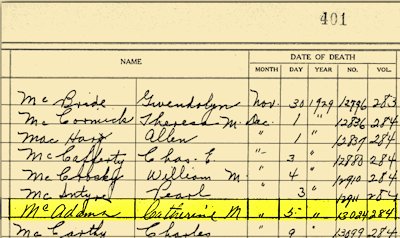 401
NAME DATE OF DEATH
MONTH DAY YEAR NO. VOL.
McBride Gwendolyn Nov. 30 1929 12796 283
McCormick Theresa M. Dec. 1 " 12836 284
Allen " 1 " 12837 284
McCafferty Chas. E. " 3 " 12880 284
William M " 4 " 12910 284
McIntyre Pearl 3 " 284
McAdams Catherine M " 5 " 13024 284
McCarthy Charles " 9 " 284